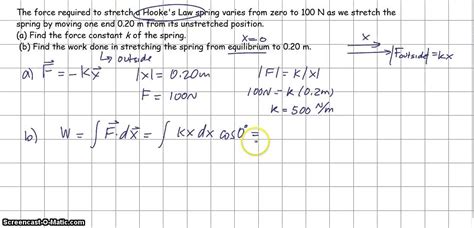 The force required to stretch a Hooke's Law spring varies from zero to 100 N as we stretch the
spring by moving one end 0.20 m from its unstretched position.
(a) Find the force constant k of the spring.
x=0
(b) Find the work done in stretching the spring from equilibrium to 0.20 m.
x
↳ outside
|Foutside|=kx
a) F⃗ = -kx⃗ |x| = 0.20m |F| = k|x|
F = 100N 100N = k(0.2m)
k = 500 N/m
b) W = ∫ F⃗·dx⃗ = ∫ kx dx cos0° =
Screencast-O-Matic.com